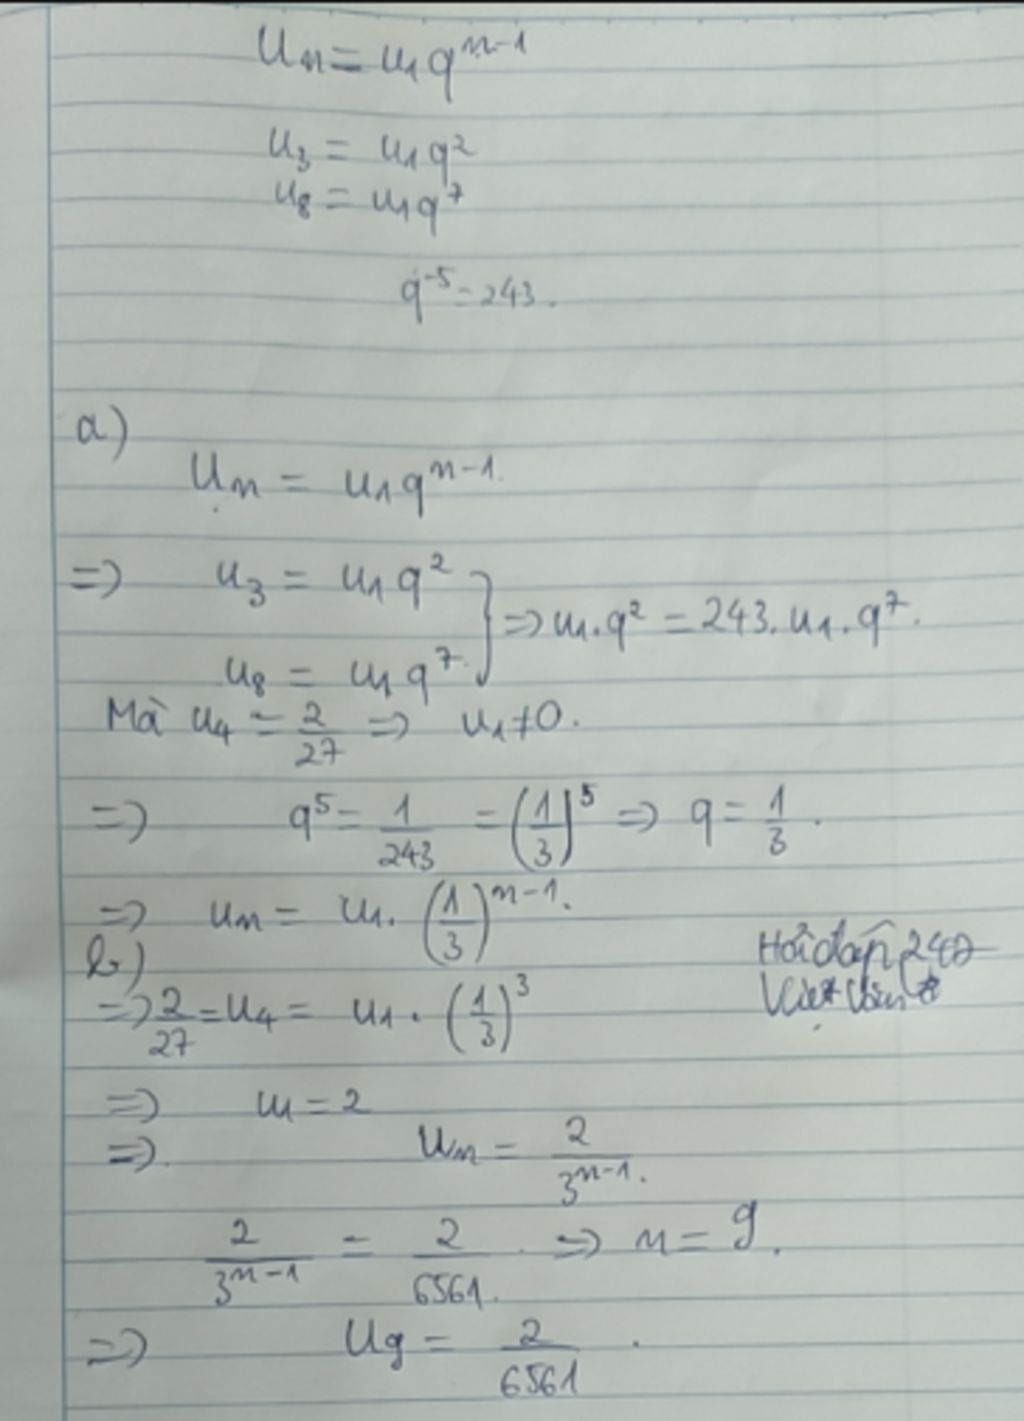 Uₙ = u₁qⁿ⁻¹
u₃ = u₁q²
u₈ = u₁q⁷
q⁻⁵ = 243.
a)
Uₙ = u₁qⁿ⁻¹.
=> u₃ = u₁q²
u₈ = u₁q⁷. } => u₁.q² = 243.u₁.q⁷.
Mà u₄ = 2/27 => u₁≠0.
=> q⁵ = 1/243 = (1/3)⁵ => q = 1/3.
=> uₙ = u₁.(1/3)ⁿ⁻¹.
b)
Hỏi đáp 247
=> 2/27 = u₄ = u₁.(1/3)³
=> u₁ = 2
=> Uₙ = 2/3ⁿ⁻¹.
2/3ⁿ⁻¹ = 2/6561. => n = 9.
=> U₉ = 2/6561.